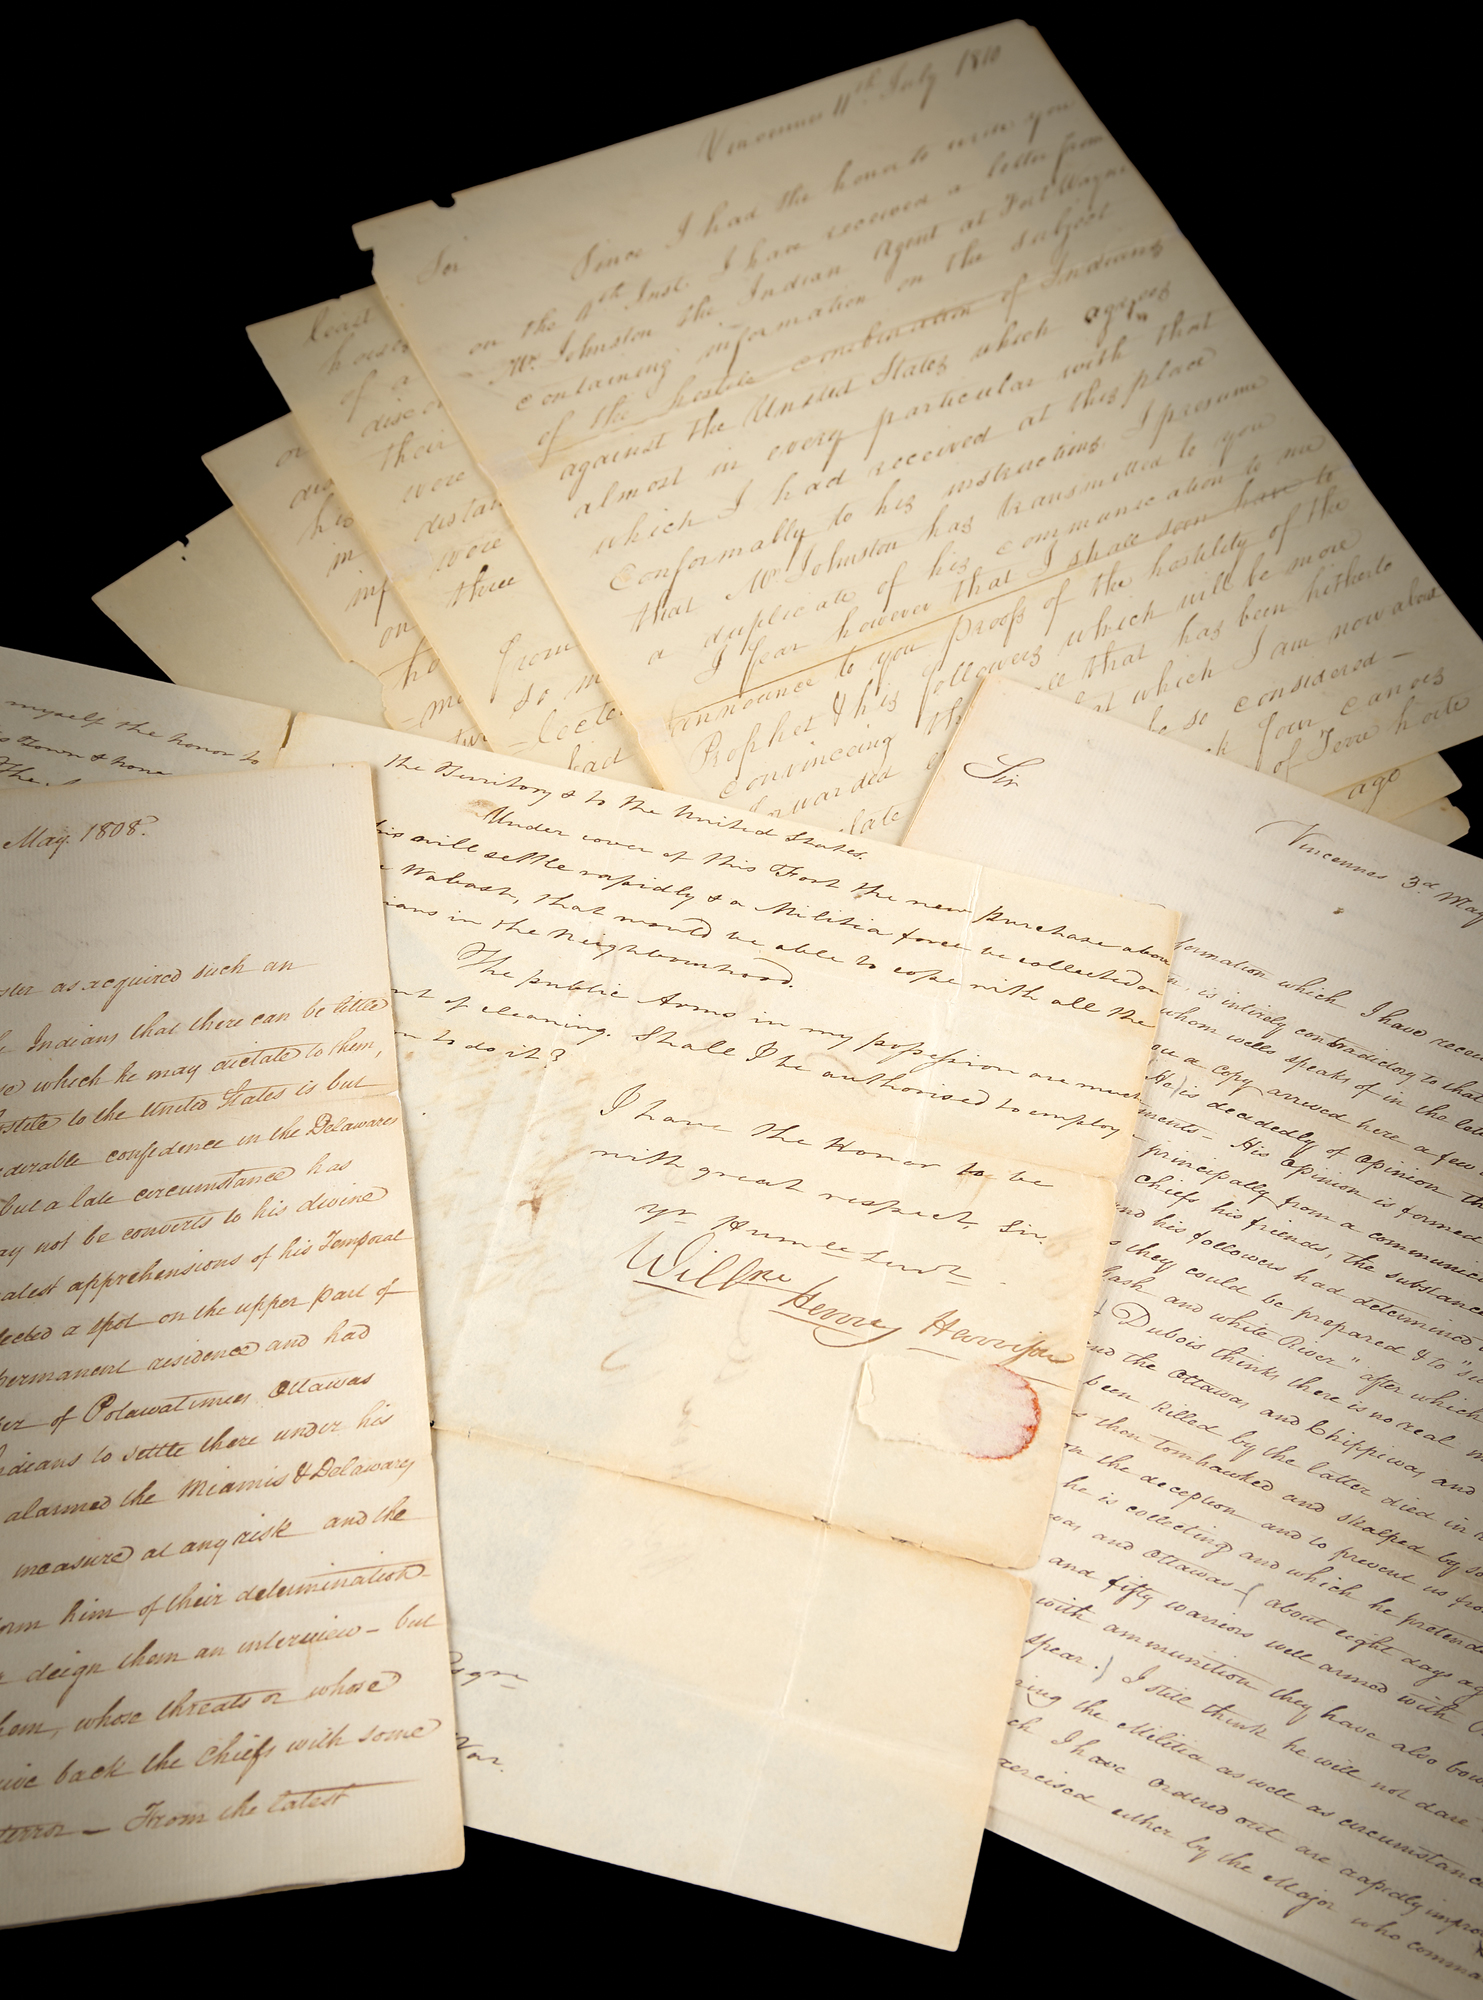 Vincennes 11th July 1810
Sir
Since I had the honor to write you
on the 4th Inst. I have received a letter from
Mr. Johnston the Indian Agent at Fort Wayne
containing information on the subject
of the hostile combination of Indians
against the United States which agrees
almost in every particular with that
which I had received at this place
Conformally to his instructions I presume
that Mr. Johnston has transmitted to you
a duplicate of his communication to me
I fear however that I shall soon have to
announce to you proofs of the hostility of the
Prophet & his followers which will be more
convincing than all that has been hitherto
forwarded
at which I am now about
be so considered —
Four canoes
of Terre haute
ago
least
of a
their
were
distan
were
three
from
so m
lecte
had
or
his
in
inf
on
myself the honor to
The
the Territory & to the United States.
Under cover of this Fort the new purchase above
this will settle rapidly & a Militia force be collected on
Wabash, that would be able to cope with all the
ians in the Neighbourhood.
The public Arms in my possession are much
nt of cleaning. Shall I be authorised to employ
to do it?
I have the Honor to be
with great respect, Sir.
yr Humle Servt
Willm Henry Harrison
May. 1808.
ster as acquired such an
Indians that there can be little
se which he may dictate to them,
ostile to the United States is but
derable confidence in the Delawares
but a late circumstance has
ay not be converts to his divine
atest apprehensions of his Temporal
lected a spot on the upper part of
permanent residence and had
er of Potawatimies Ottawas
ndians to settle there under his
alarmed the Miamis & Delawares
measure at any risk and the
orm him of their determination
deign them an interview — but
hem, whose threats or whose
ive back the Chiefs with some
terror — From the latest
Sir
Vincennes 3d May
formation which I have recei
is intirely contradictory to that
whom wells speaks of in the lette
ou a copy arrived here a few
(He) is decidedly of opinion th
ments — His Opinion is formed
principally from a communic
Chiefs his friends, the substance
nd his followers had determined
s they could be prepared & to "su
bash and white River" after which
Dubois thinks there is no real
nd the Ottawas and Chippiwas and
been killed by the latter died in
s then tomhawked and skalped by so
on the deception and to prevent us fro
he is collecting and which he pretend
was and Ottawas — (about eight days ag
and fifty warriors well armed with
with ammunition they have also bow
spear.) I still think he will not dare
ring the Militia as well as circumstance
ch I have ordered out are rapidly impro
xercised either by the Major who comma